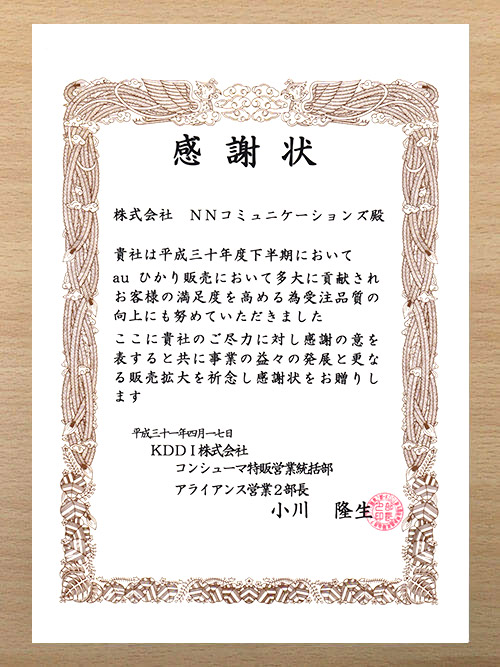 感謝状
株式会社　NNコミュニケーションズ殿
貴社は平成三十年度下半期において
au ひかり販売において多大に貢献され
お客様の満足度を高める為受注品質の
向上にも努めていただきました
ここに貴社のご尽力に対し感謝の意を
表すると共に事業の益々の発展と更な
る販売拡大を祈念し感謝状をお贈りし
ます
平成三十一年四月一七日
KDDI株式会社
コンシューマ特販営業統括部
アライアンス営業2部長
小川　隆生